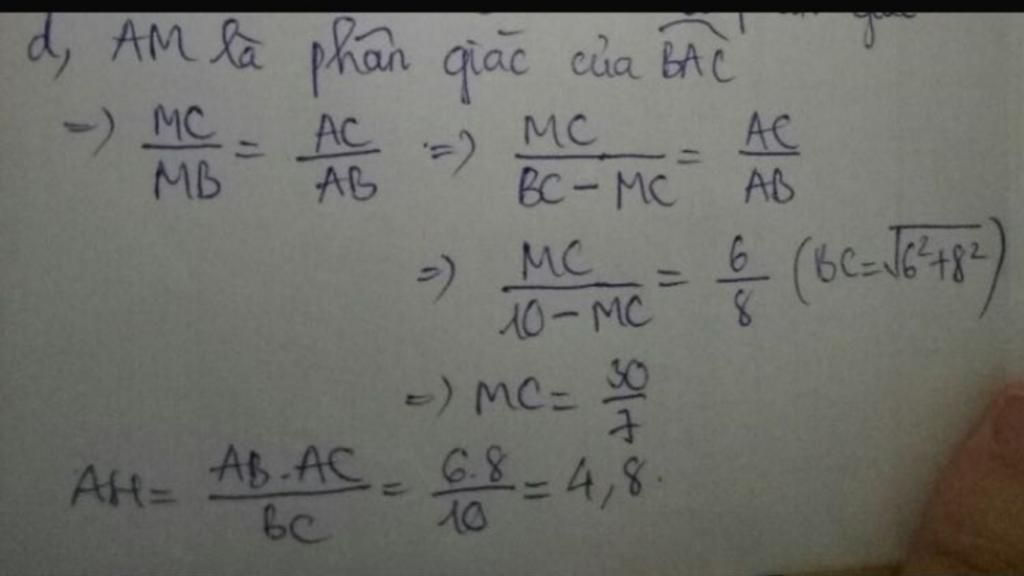 d, AM là phân giác của BAC
=> MC/MB = AC/AB => MC/(BC - MC) = AC/AB
=> MC/(10 - MC) = 6/8 (BC = √(6²+8²))
=> MC = 30/7
AH = AB.AC/BC = 6.8/10 = 4,8.